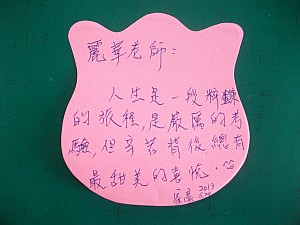 麗華老師：
人生是一段粹鍊
的旅程，是嚴厲的考
驗，但辛苦背後總有
最甜美的喜悅。
2013